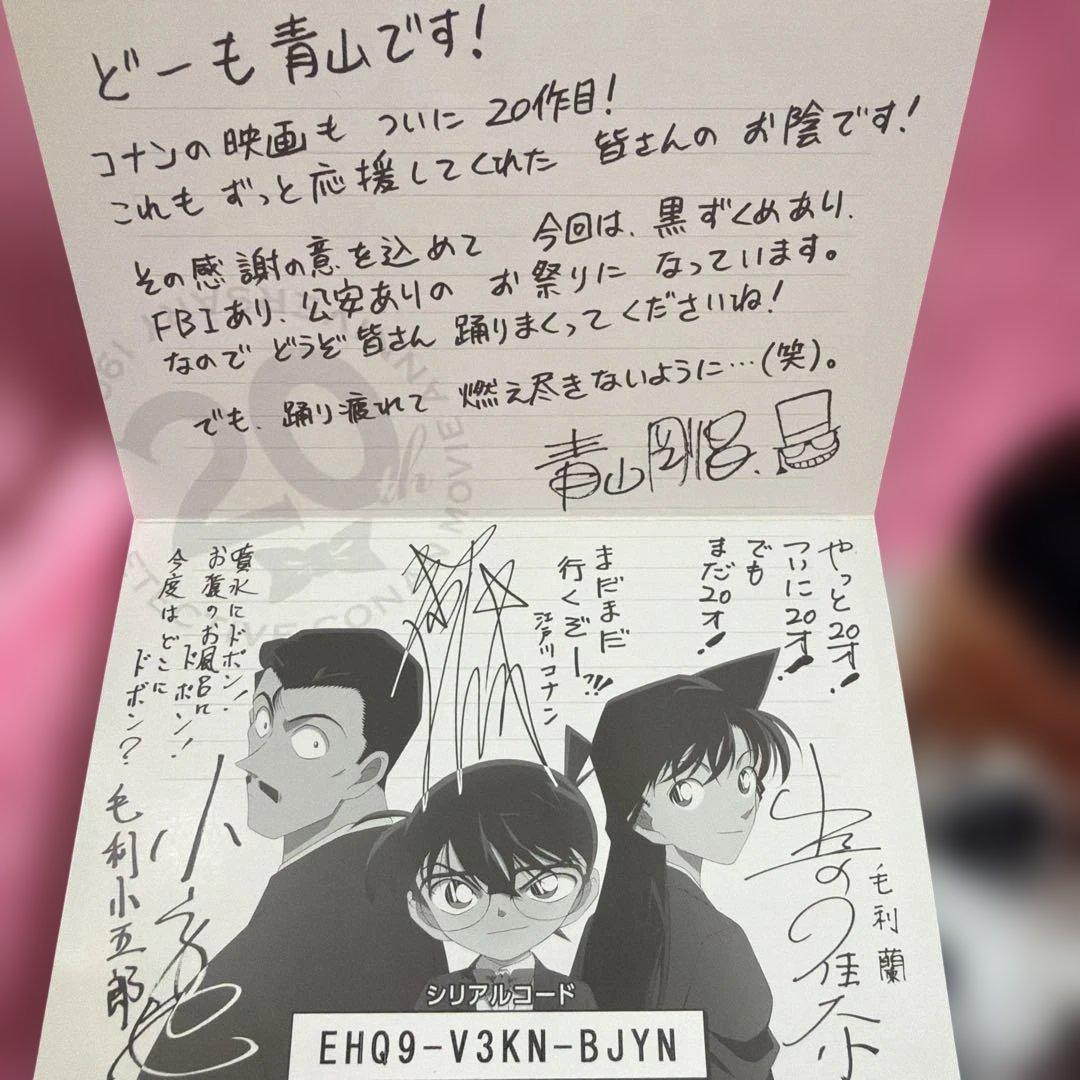 どーも青山です!
コナンの映画も ついに 20作目!
これも ずっと応援してくれた 皆さんの お陰です!
その感謝の意を込めて 今回は、黒ずくめあり、
FBIあり、公安ありの お祭りに なっています。
なので どうぞ皆さん 踊りまくってくださいね!
でも、踊り疲れて 燃え尽きないように…(笑)。
青山剛昌.
やっと20才!
ついに20才!
でも
まだ20才!
毛利 蘭
まだまだ
行くぞー!!!
江戸川コナン
噴水にドボン!
お寺のお風呂にドボン!
今度はどこに
ドボン?
毛利小五郎
シリアルコード
EHQ9-V3KN-BJYN
20